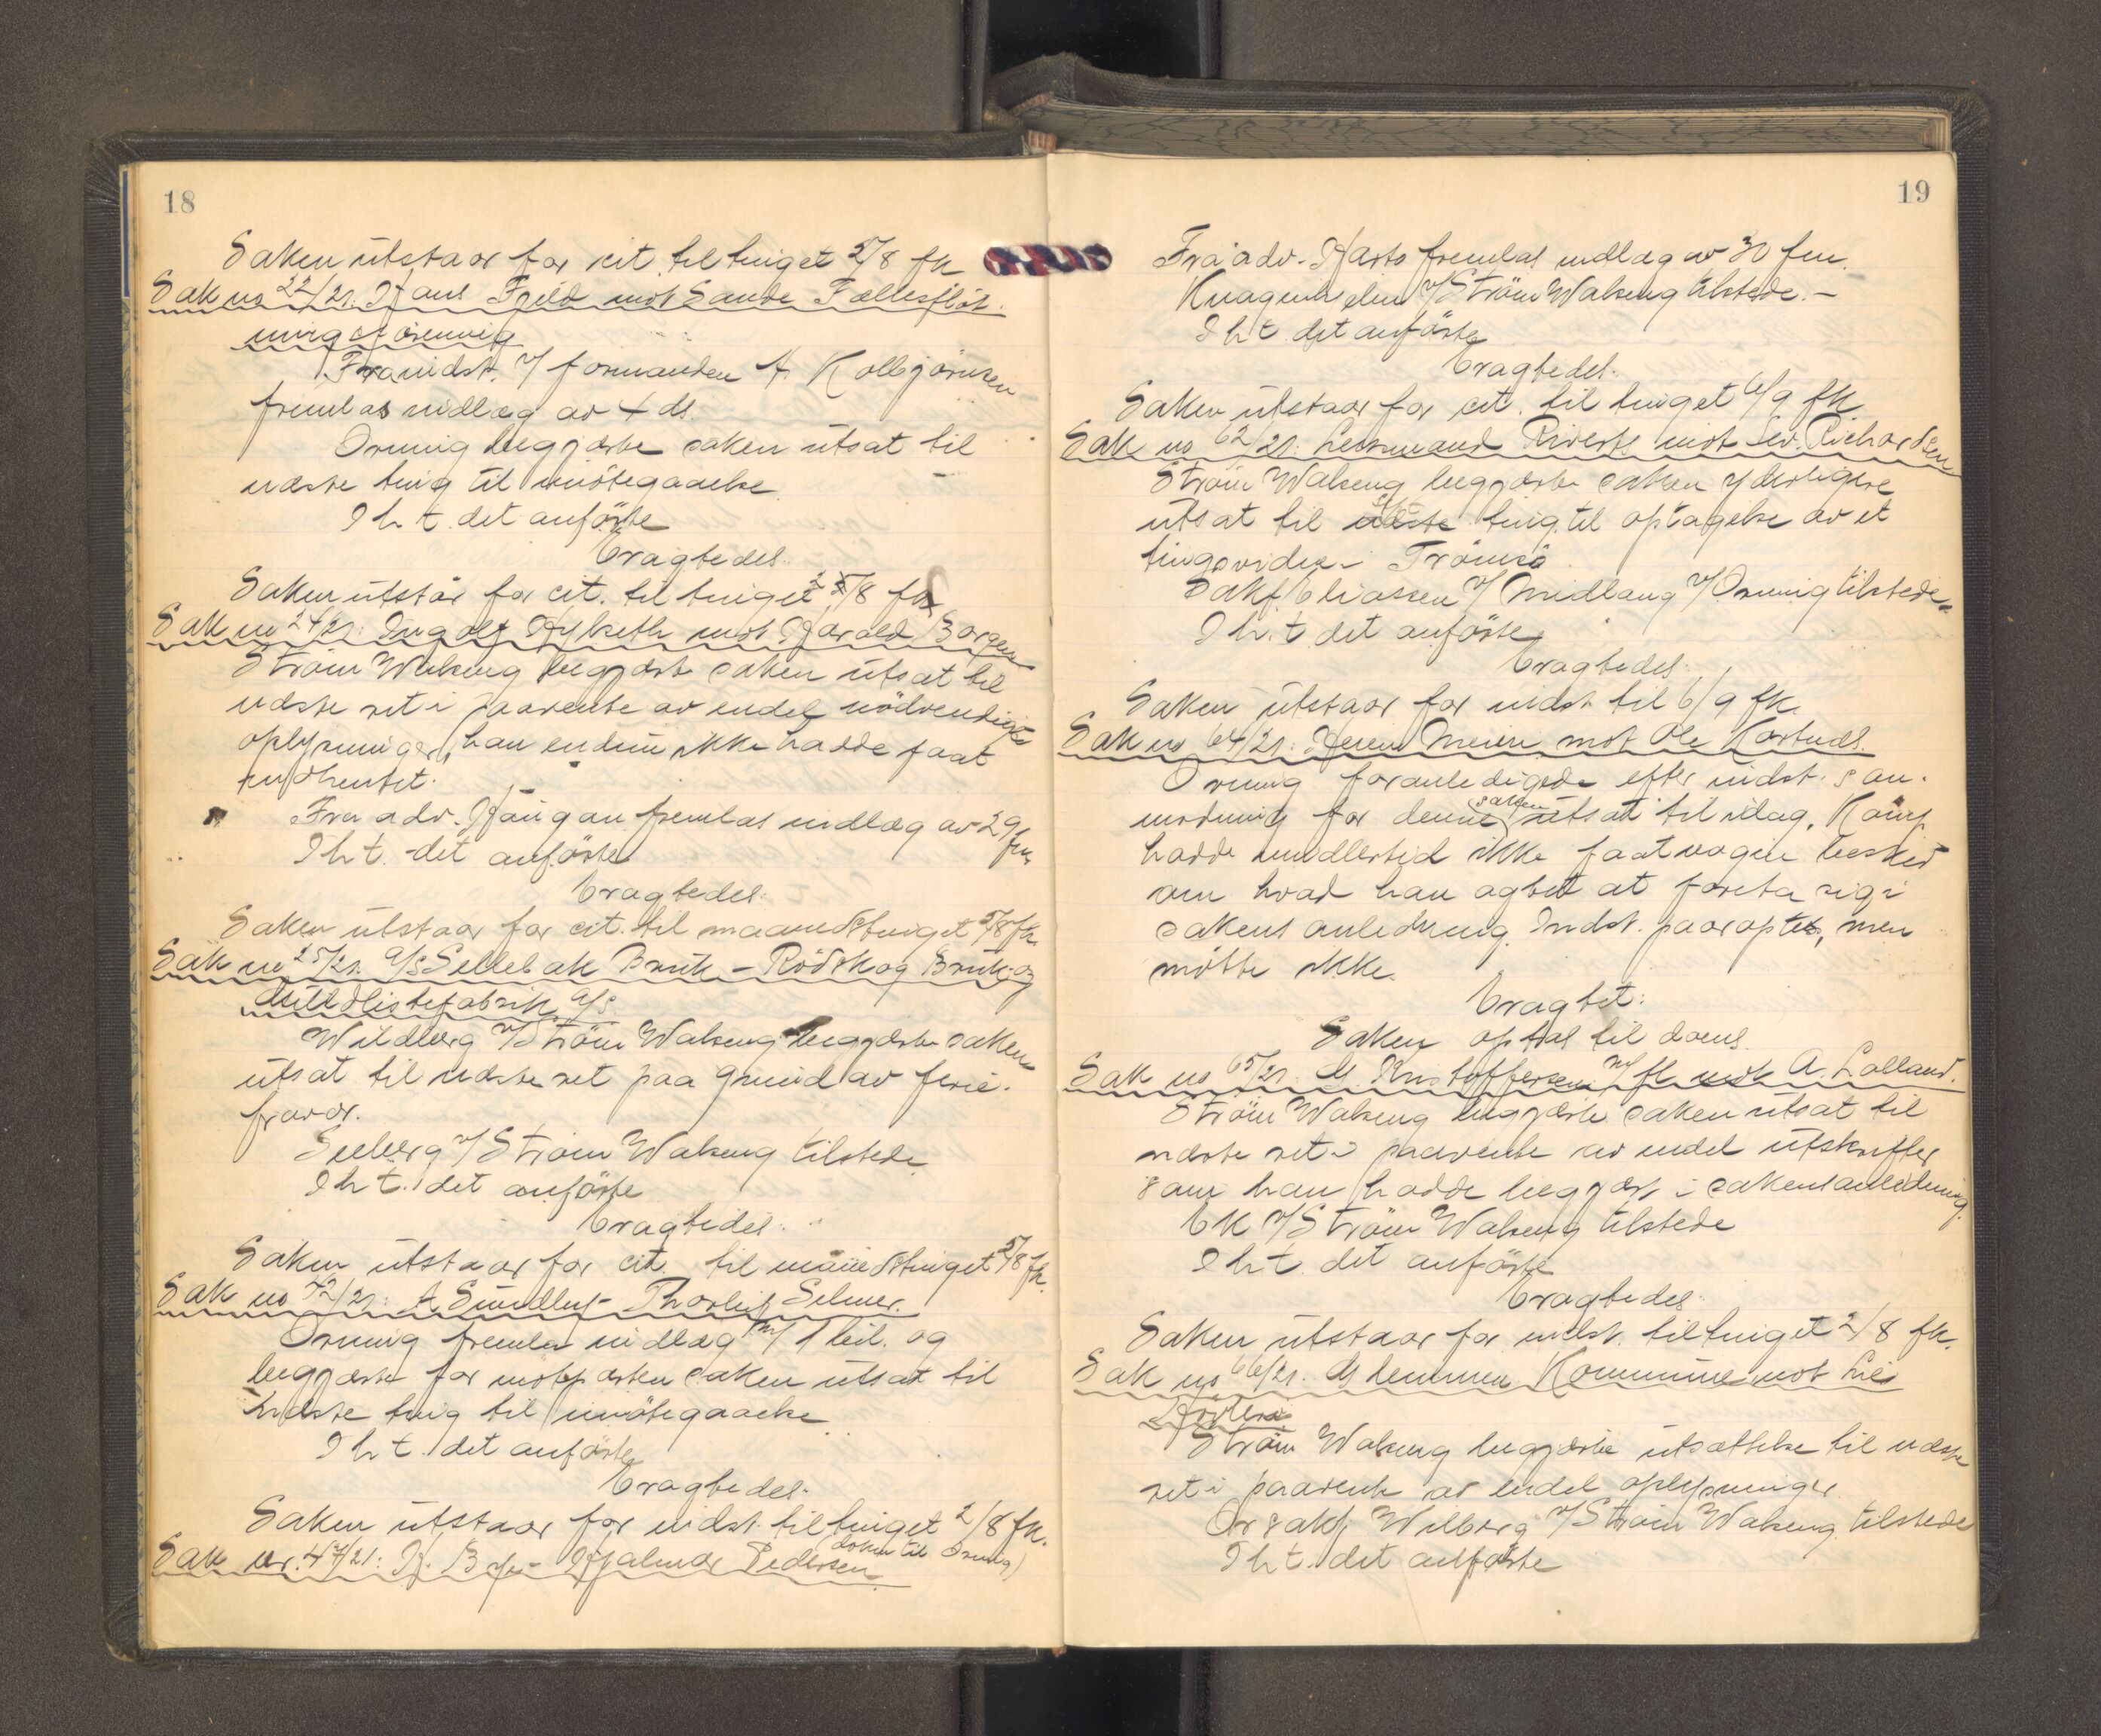 18
Saken utstaar for cit. til tinget 5/8 fk
Sak no 22/21. Hans Fjeld mot Sande Fællesfløt-
ning
Fra indst. v/ formanden A. Kolbjørnsen
fremlas indlæg av 4 ds.
Orning begjærte saken utsat til
næste ting til imøtegaaelse
I h t. det anførte
Eragtedes.
Saken utstår for cit. til tinget 2/8 fk
Sak no 24/21: Ingolf mot Harald Borgen
Strøm Walseng begjærte saken utsat til
næste ret i paavente av endel nødvendige
oplysninger, han endnu ikke hadde faat
indhentet.
Fra adv. Haugan fremlas indlæg av 29 fm
I h t. det anførte
Eragtedes:
Saken utstaar for cit. til maanedstinget 5/8 fk.
Sak no 25/21. A/S Sellebak Bruk - Rødskog Bruk og
Guldlistefabrik A/S
Wildberg v/ Strøm Walseng begjærte saken
utsat til næste ret paa grund av ferie-
fravær.
Seeberg v/ Strøm Walseng tilstede
I h t. det anførte
Eragtedes:
Saken utstaar for cit. til månedstinget 5/8 fk.
Sak no 42/21: A Sundby - Thorleif Selmer.
Orning fremla indlæg m/ 1 bil. og
begjærte for motparten saken utsat til
næste ting til imøtegaaelse
I h t. det anførte
Eragtedes.
Saken utstaar for indst. til tinget 2/8 fk.
(dokm til Orning)
Sak nr. 47/21: H. Bye - Hjalmar Pedersen
19
Fra adv. Harto fremlas indlæg av 30 fm.
Knagenhjelm v/ Strøm Walseng tilstede. -
I h t det anførte
Eragtedes.
Saken utstaar for cit. til tinget 6/9 fk.
Sak no 62/21. Lensmand mot Sev. Richardsen
Strøm Walseng begjærte saken yderligere
utsat til ting til optagelse av et
tingsvidne i Tromsø
Sakf. Eliassen v/ Midlang v/ Orning tilstede.
I h. t det anførte
Eragtedes:
Saken utstaar for indst til 6/9 fk.
Sak no 64/21: Meier mot Ole
Orning foranledigede efter indst. s an-
modning for denne saken utsat til idag. Kamp
hadde imidlertid ikke faat nogen besked
om hvad han agtet at foreta sig i
sakens anledning. Indst. paaroptes, men
møtte ikke.
Eragtet:
Saken optas til doms.
Sak no 65/21. M. Kristoffersen m/fl. mot A. Lolland.
Strøm Walseng begjærte saken utsat til
næste ret i paavente av endel utskrifter
som han hadde begjært i sakens anledning.
Ek v/ Strøm Walseng tilstede
I h t. det anførte
Eragtedes.
Saken utstaar for indst. til tinget 2/8 fk.
Sak no 66/21. Glemmen Kommune mot
Strøm Walseng begjærte utsættelse til næste
ret i paavente av endel oplysninger.
Or sakf. Wilberg v/ Strøm Walseng tilstede
I h t. det anførte